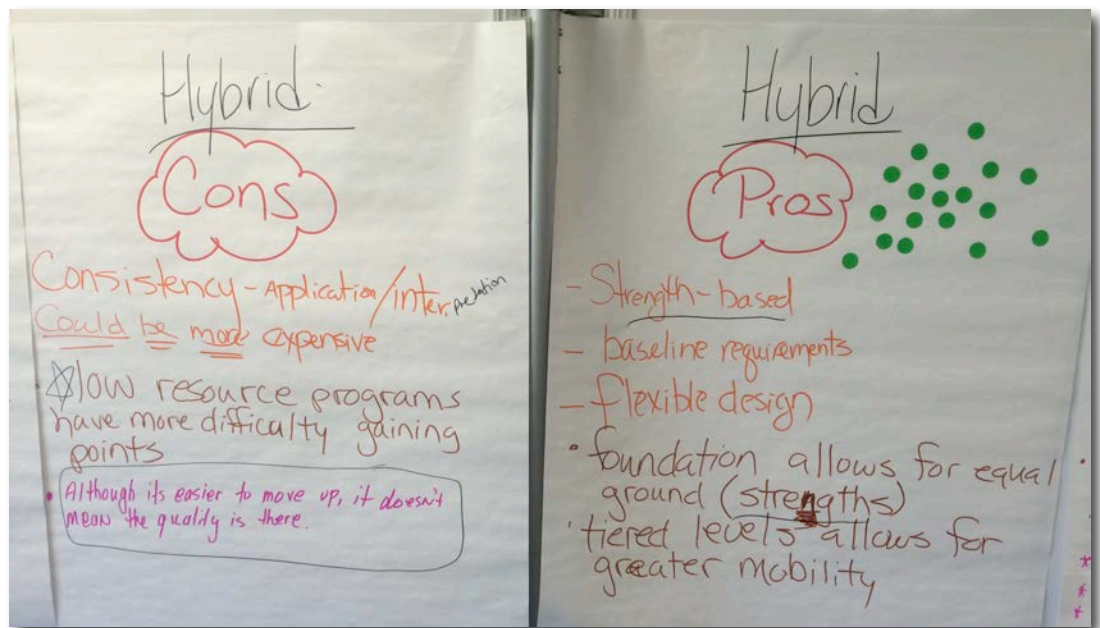 Hybrid
Cons
Consistency - Application/interpretation
Could be more expensive
☆ low resource programs
have more difficulty gaining
points
• Although its easier to move up, it doesn't
mean the quality is there.
Hybrid
Pros
- Strength-based
- baseline requirements
- flexible design
• foundation allows for equal
ground (strengths)
• tiered levels allows for
greater mobility